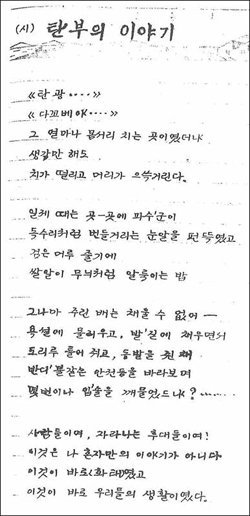 (시) 탄부의 이야기
≪탄광····≫
≪다꼬베야····≫
그 얼마나 몸서리 치는 곳이였더냐
생각만 해도
치가 떨리고 머리가 으쓱거린다.
일제 때는 곳-곳에 파수군이
독수리처럼 번들거리는 눈알을 펀뜩였고
검은 머루 줄기에
쌀알이 무늬처럼 알룩이는 밥
그나마 주린 배는 채울 수 없어 —
욕설에 몰리우고, 발'길에 채우면서
도리루 틀어 쥐고, 동발을
반디'불같은 안전등을 바라보며
몇번이나 입'술을 깨물었드냐?······
사람들이여, 자라나는 후대들이여!
이것은 나 혼자만의 이야기가 아니다
이것이 바로 였고
이것이 바로 우리들의 생활이였다.